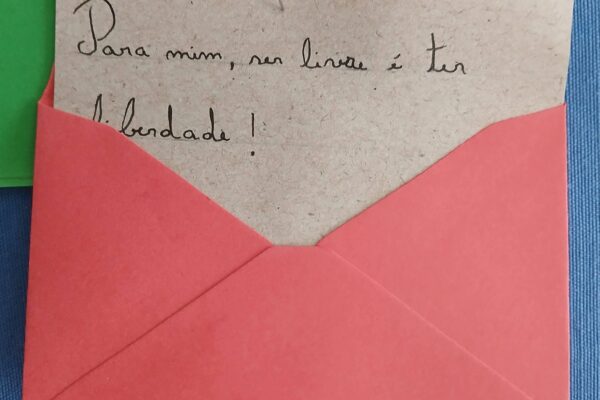 Para mim, ser livre é ter
liberdade!